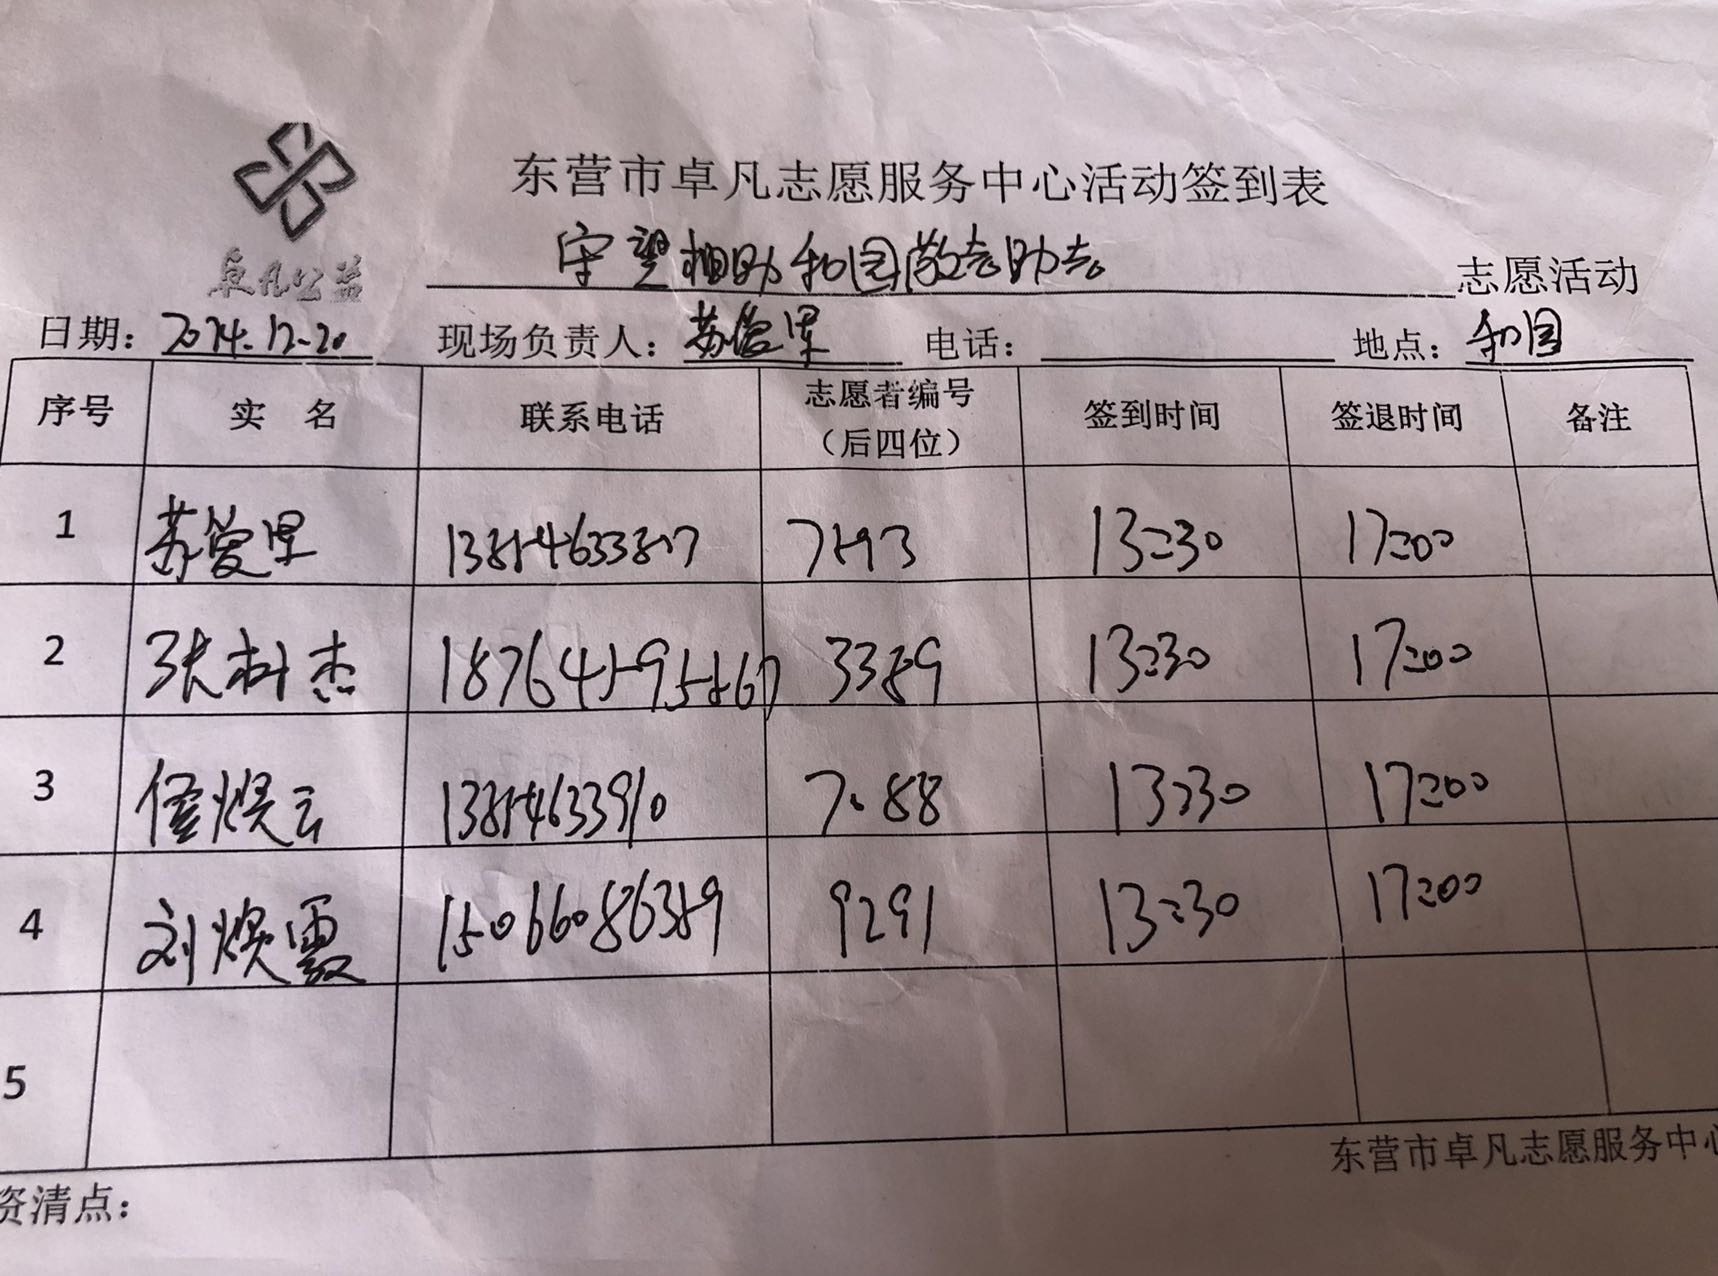 东营市卓凡志愿服务中心活动签到表
卓凡公益
守望相助和园敬老助老 志愿活动
日期：2024.12-20 现场负责人：苏爱军 电话： 地点：和园
序号 实 名 联系电话 志愿者编号（后四位） 签到时间 签退时间 备注
1 苏爱军 7593 13:30 17:00
2 张树杰 18764595567 3389 13:30 17:00
3 焕云 13854633910 7088 13:30 17:00
4 刘焕霞 15066086359 9291 13:30 17:00
5
东营市卓凡志愿服务中心
资清点：